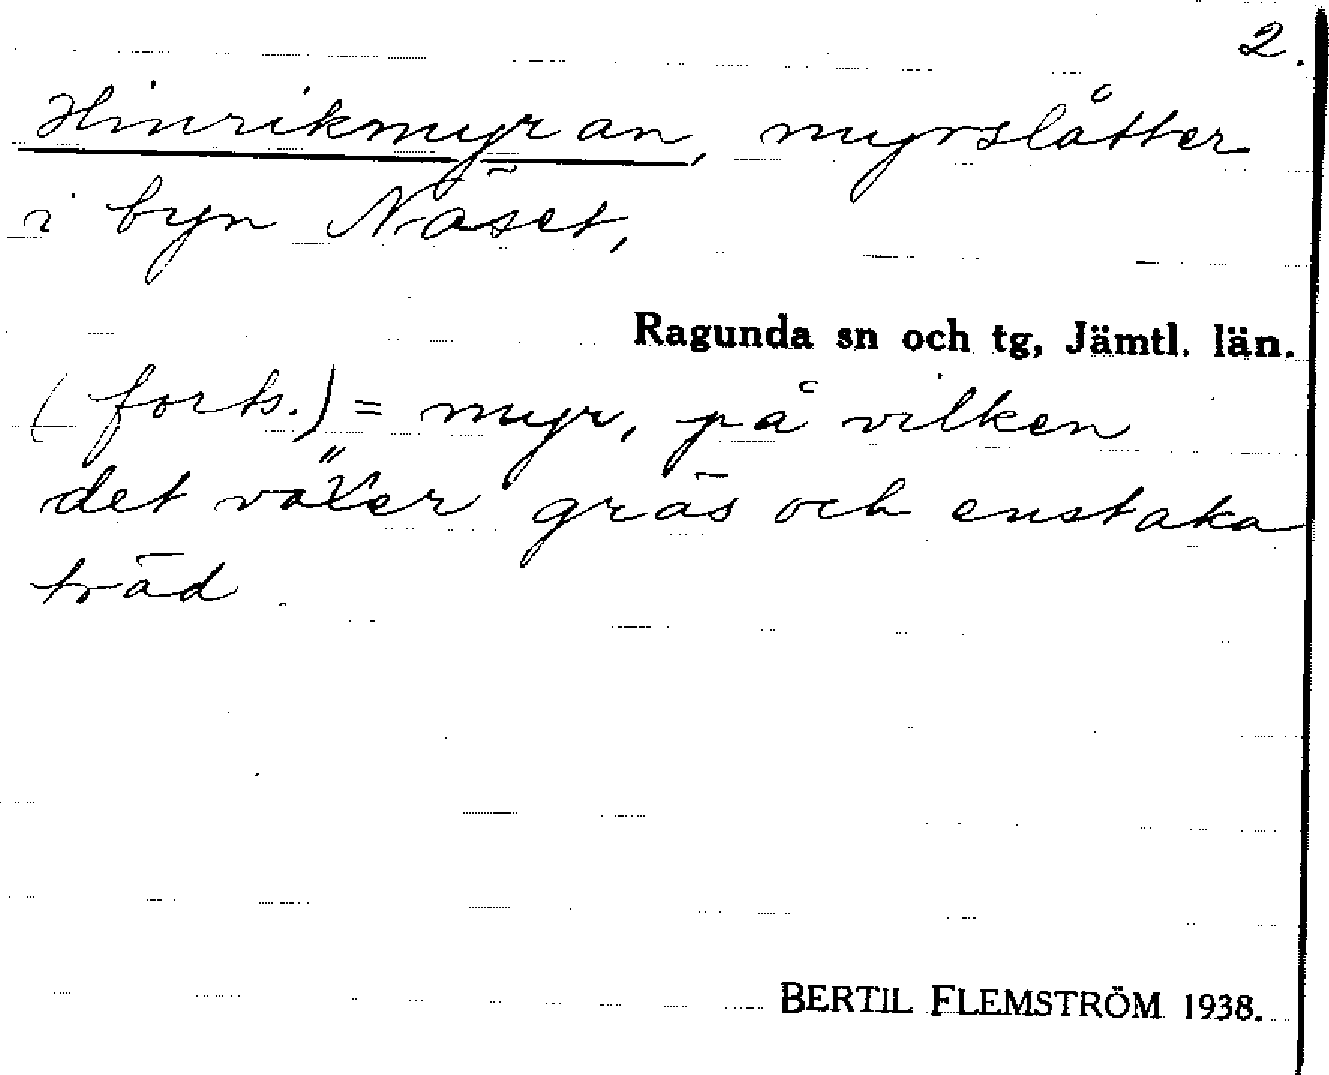 2.
Hinrikmyran, myrslåtter
i byn Näset,
Ragunda sn och tg, Jämtl. län.
(forts.) = myr, på vilken
det växer gräs och enstaka
träd.
BERTIL FLEMSTRÖM 1938.